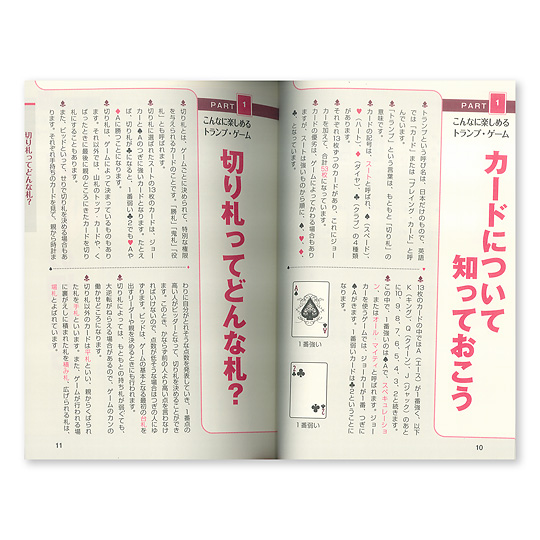 PART 1
こんなに楽しめる
トランプ・ゲーム
カードについて
知っておこう
♣トランプという呼び名は、日本だけのもので、英語
では「カード」または「プレイング・カード」と呼
んでいます。
「トランプ」という言葉は、もともと「切り札」の
意味です。
♥カードの記号は、スートと呼ばれ、♠(スペード)、
♥(ハート)、♦(ダイヤ)、♣(クラブ)の4種類
があります。
それぞれ13枚ずつのカードがあり、これにジョー
カーを加えて、合計53枚になっています。
♣カードの優劣は、ゲームによってかわる場合もあり
ますが、スートは強いものから順に、♠、♥、♦、
♣となっています。
13枚のカードの中ではA(エース)が1番強く、以下
K(キング)、Q(クイーン)、J(ジャック)のあと
に10、9、8、7、6、5、4、3、2と続きます。
この中で、1番強いのは♠Aで、スペキュレーショ
ン、またはオール・マイティと呼ばれます。ジョー
カーを使うゲームでは、ジョーカーが1番、つぎに
♠Aがきます。1番弱いカードは♣2ということに
なります。
1番強い
1番弱い
10
PART 1
こんなに楽しめる
トランプ・ゲーム
切り札ってどんな札?
♣切り札とは、ゲームごとに決められて、特別な権限
を与えられるカードのことです。「勝札」「鬼札」「役
札」とも呼ばれます。
切り札に選ばれたスートの13枚のカードは、ジョー
カーと♠Aのつぎに強いカードとなります。たとえ
ば、切り札が♣になると、1番弱い♣2でも♥Aや
♦Aに勝つことになります。
♣切り札は、ゲームによって決まっているものもあり
ます。それ以外では、山札のトップ・カードや、く
ばったときに最後に親のところにきたカードを切り
札にすることもあります。
また、ビッドといって、せりで切り札を決める場合もあ
ります。それぞれ手持ちのカードを見て、親から時計ま
わりに自分がとれそうな点数を発表していき、1番点の
高い人がビッダーとなって、切り札を決めることができ
ます。このとき、かならず前の人より高い点を言わなけ
ればいけないので、点数が低そうな場合はつぎの人にゆ
ずります。ビッドは、ゲームの基本となる最初の台札を
出すリーダーや親を決めるときにも行われます。
♣切り札によっては、もともとの持ち札が弱くても、
大逆転がねらえる場合があるので、ゲームのカンの
働かせどころになります。
♣切り札以外のカードは平札といい、親からくばられ
た札を手札といいます。また、ゲームが行われる場
に裏がえしに積まれた札を積み札、広げられる札は、
場札とよばれています。
切り札ってどんな札?
11